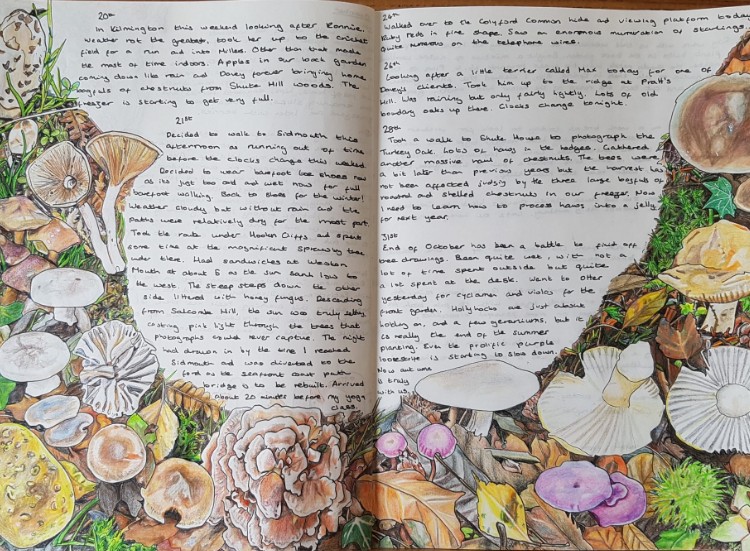 20th
In Kilmington this weekend looking after Ronnie.
Weather not the greatest, took her up to the cricket
field for a run and into Millers. Other than that made
the most of time indoors. Apples in our back garden
coming down like rain and Davey forever bringing home
bagfuls of chestnuts from Shute Hill woods. The
freezer is starting to get very full.
21st
Decided to walk to Sidmouth this
afternoon as running out of time
before the clocks change this weekend
Decided to wear barefoot shoes now
as its just too cold and wet now for full
barefoot walking. Back to shoes for the winter!
Weather cloudy but without rain and the
paths were relatively dry for the most part.
Took the route under Hooken Cliffs and spent
some time at the magnificent spicewing thrift
under there. Had sandwiches at Weston
Mouth at about 5 as the sun sank low to
the west. The steep steps down the other
side littered with honey fungus. Descending
from Salcombe Hill, the sun was truly setting,
casting pink light through the trees that
photographs could never capture. The night
had drawn in by the time I reached
Sidmouth and was diverted to the
ford as the seafront coast path
bridge is to be rebuilt. Arrived
about 20 minutes before my yoga
class.
24th
Walked over to the Colyford Common hide and viewing platform today
Ruby Reds in fine shape. Saw an enormous murmuration of starlings.
Quite numerous on the telephone wires.
26th
Looking after a little terrier called Max today for one of
Davey's clients. Took him up to the ridge at Pratt's
Hill. Was raining but only fairly lightly. Lots of old
boundary oaks up there. Clocks change tonight.
28th
Took a walk to Shute House to photograph the
Turkey Oak. Lots of haws in the hedges. Gathered
another massive haul of chestnuts. The trees were
a bit later than previous years but the harvest has
not been affected judging by the three large bagfuls of
roasted and shelled chestnuts in our freezer. Now
I need to learn how to process haws into a jelly
for next year.
31st
End of October has been a battle to finish off
tree drawings. Been quite wet, with not a
lot of time spent outside but quite
a lot spent at the desk. Went to Otter
yesterday for cyclamen and violas for the
front garden. Hollyhocks are just about
holding on, and a few geraniums, but it
is really the end of the summer
planting. Even the prolific purple
loosestrife is starting to slow down.
Now autumn
is truly
with us.